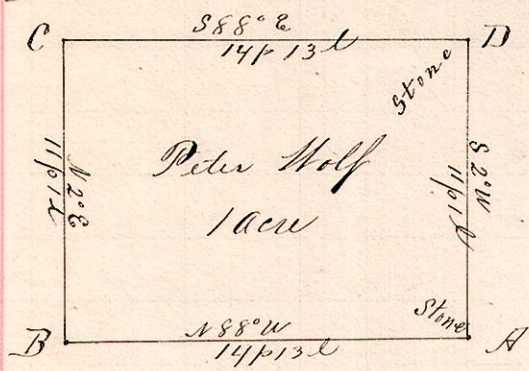 C S 88° E D
14p 13l
Stone
N 2° E
11p 1l
Peter Wolf
1 acre
S 2° W
11p 1l
Stone
B N 88° W A
14p 13l